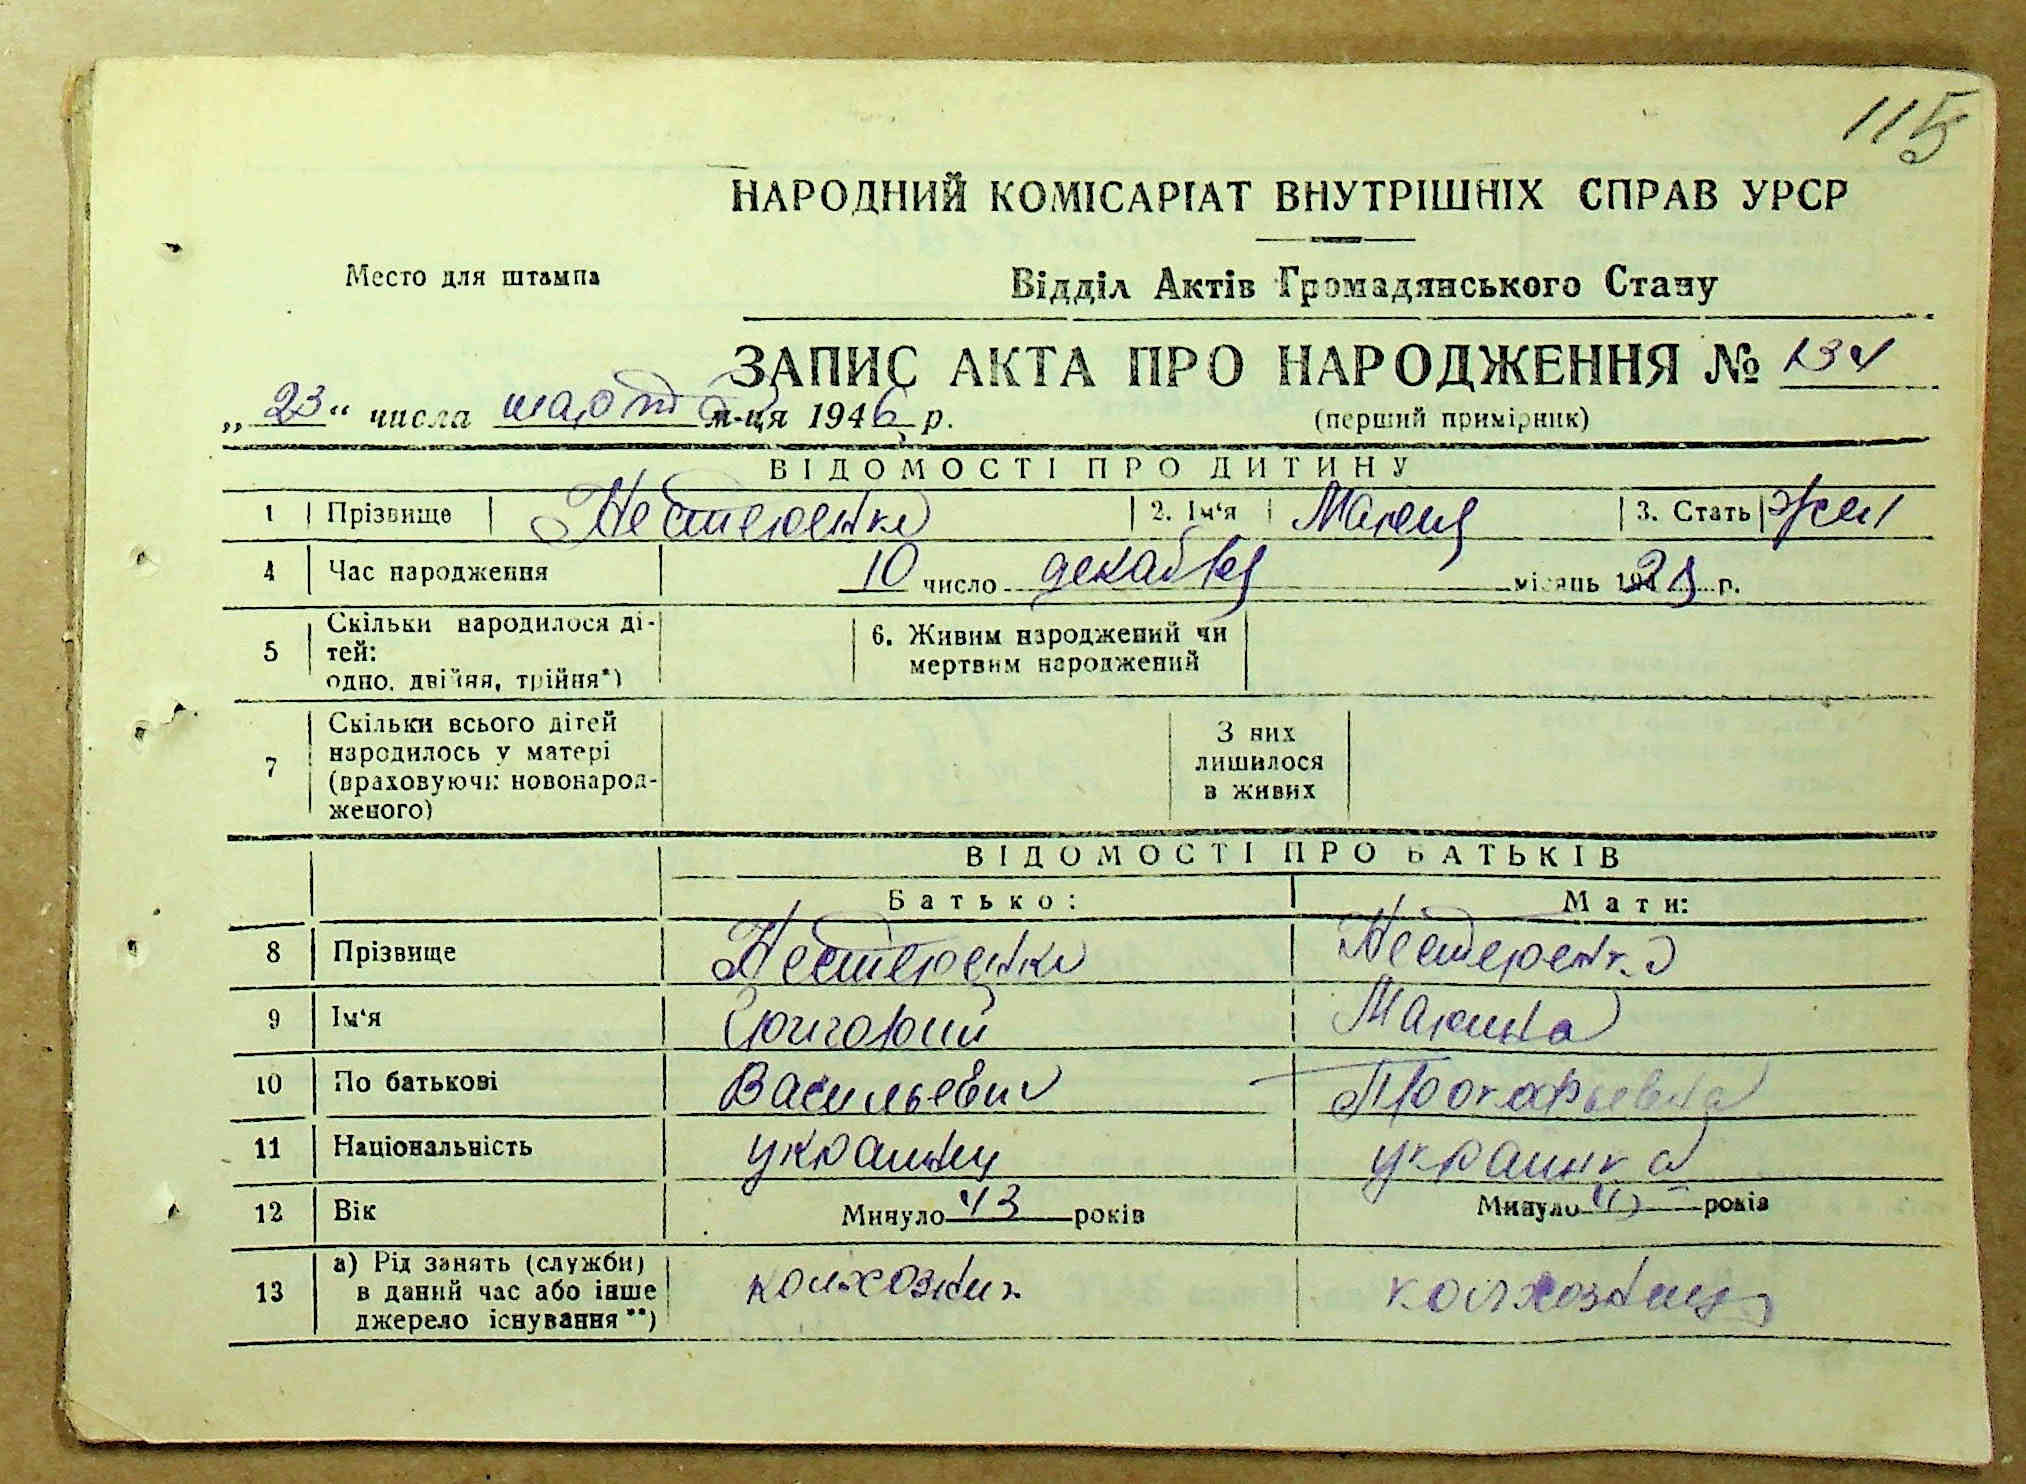 115
НАРОДНИЙ КОМІСАРІАТ ВНУТРІШНІХ СПРАВ УРСР
Место для штампа
Відділ Актів Громадянського Стану
ЗАПИС АКТА ПРО НАРОДЖЕННЯ № 134
„23“ числа марта м-ця 1946 р.
(перший примірник)
ВІДОМОСТІ ПРО ДИТИНУ
1 Прізвище Нестеренко 2. Ім'я Мария 3. Стать жен
4 Час народження 10 число декабря місяць р.
5 Скільки народилося ді-
тей:
одно, двійня, трійня*)
6. Живим народжений чи
мертвим народжений
7 Скільки всього дітей
народилось у матері
(враховуючи новонарод-
женого)
З них
лишилося
в живих
ВІДОМОСТІ ПРО БАТЬКІВ
Батько: Мати:
8 Прізвище Нестеренко Нестеренко
9 Ім'я Григорий Марина
10 По батькові Васильевич Прокофьевна
11 Національність украинец украинка
12 Вік Минуло 43 років Минуло років
13 а) Рід занять (служби)
в даний час або інше
джерело існування**)
колхозник колхозница